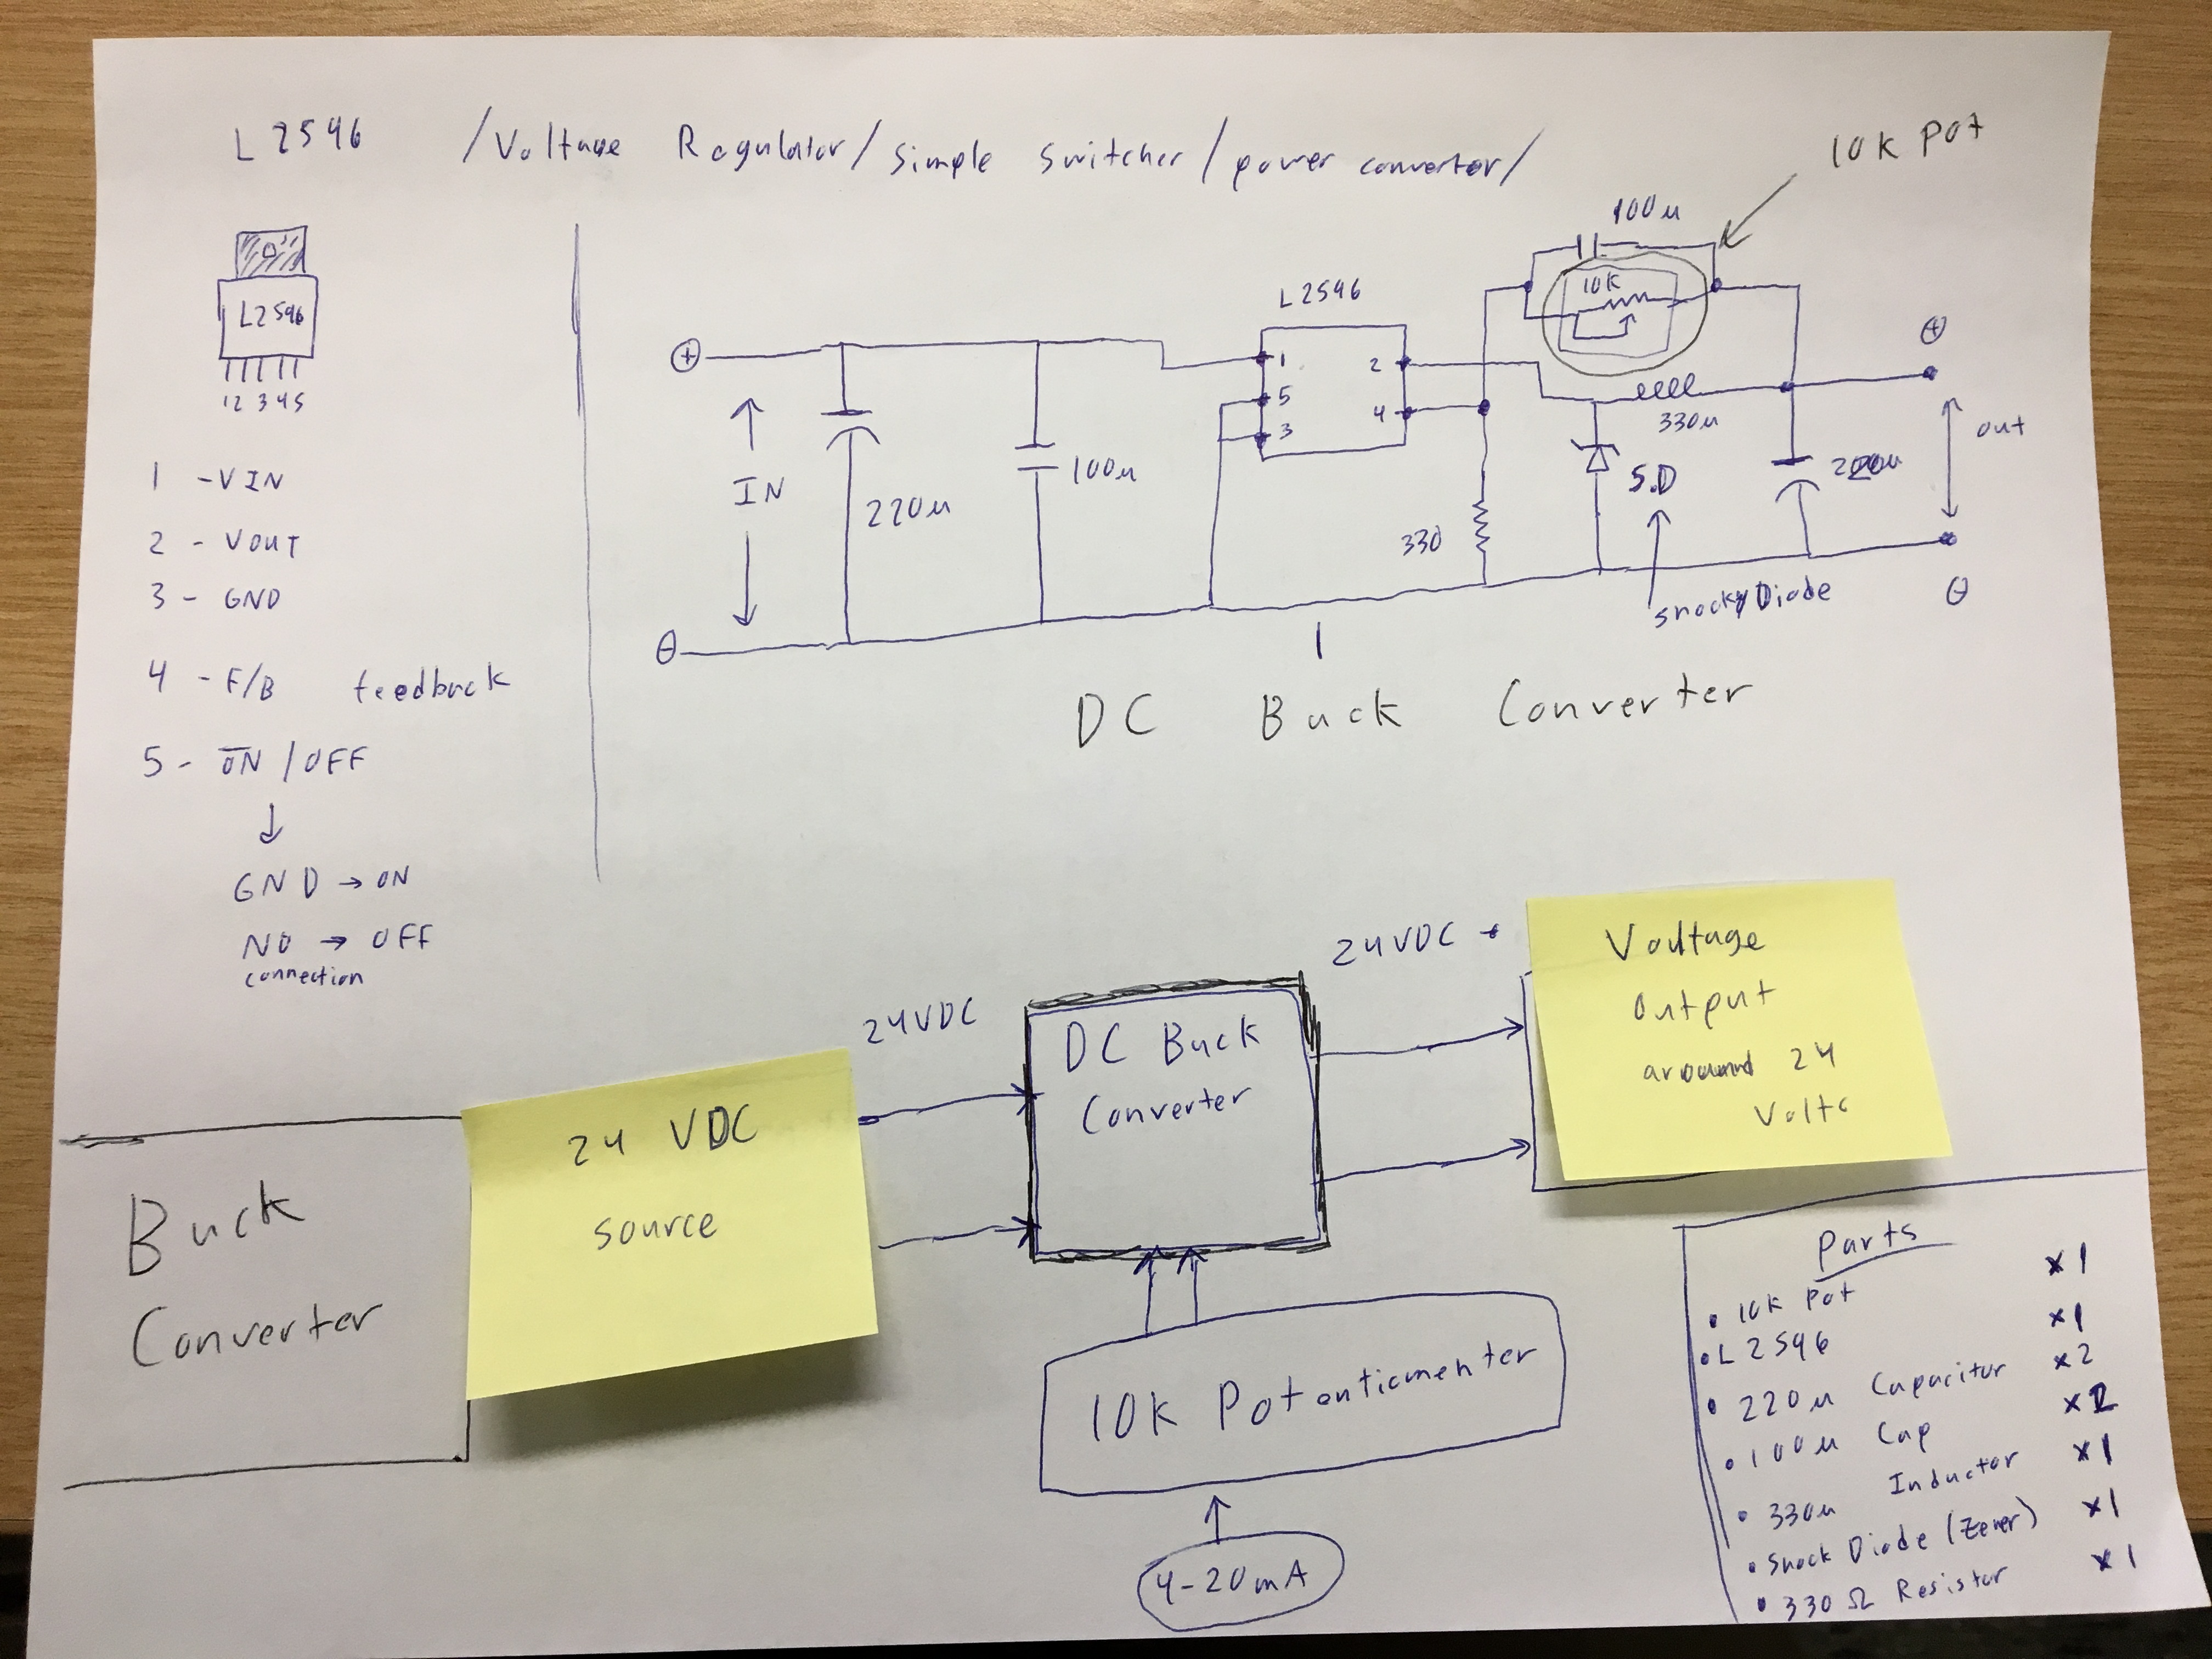 L2596 /Voltage Regulator/simple switcher/power convertor/
10k Pot
L2596
1 2 3 4 5
1 - VIN
2 - VOUT
3 - GND
4 - F/B feedback
5 - ON / OFF
GND → ON
NO → OFF
connection
+
IN
220u
100u
L2596
1
5
3
2
4
100u
10K
330u
330
S.D
snocky Diode
220u
+
out
DC Buck Converter
24VDC
24VDC
Buck
Converter
24 VDC
source
DC Buck
Converter
Voltage
output
around 24
Volts
10k Potenticmenter
4-20mA
Parts
• 10k Pot x1
• L2596 x1
• 220u Capacitor x2
• 100u Cap x2
• 330u Inductor x1
• Snock Diode (Zener) x1
• 330 Ω Resistor x1